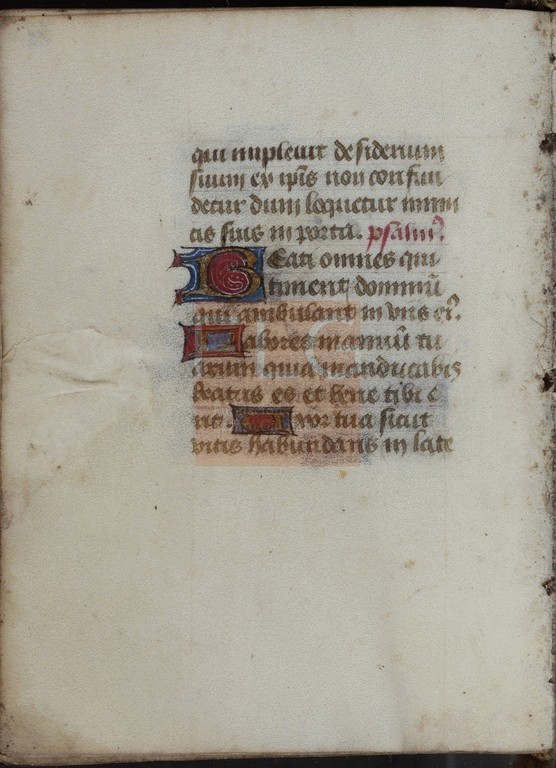 qui impleuit desiderium
suum ex ip̄is non confun
detur dum loquetur inimi
cis suis in porta. psalm̄.
Beati omnes qui
timent dominū
qui ambulant in viis eī.
Labores manuū tu
arum quia manducabis
beatus es et bene tibi e
rit. Uxor tua sicut
vitis habundans in late